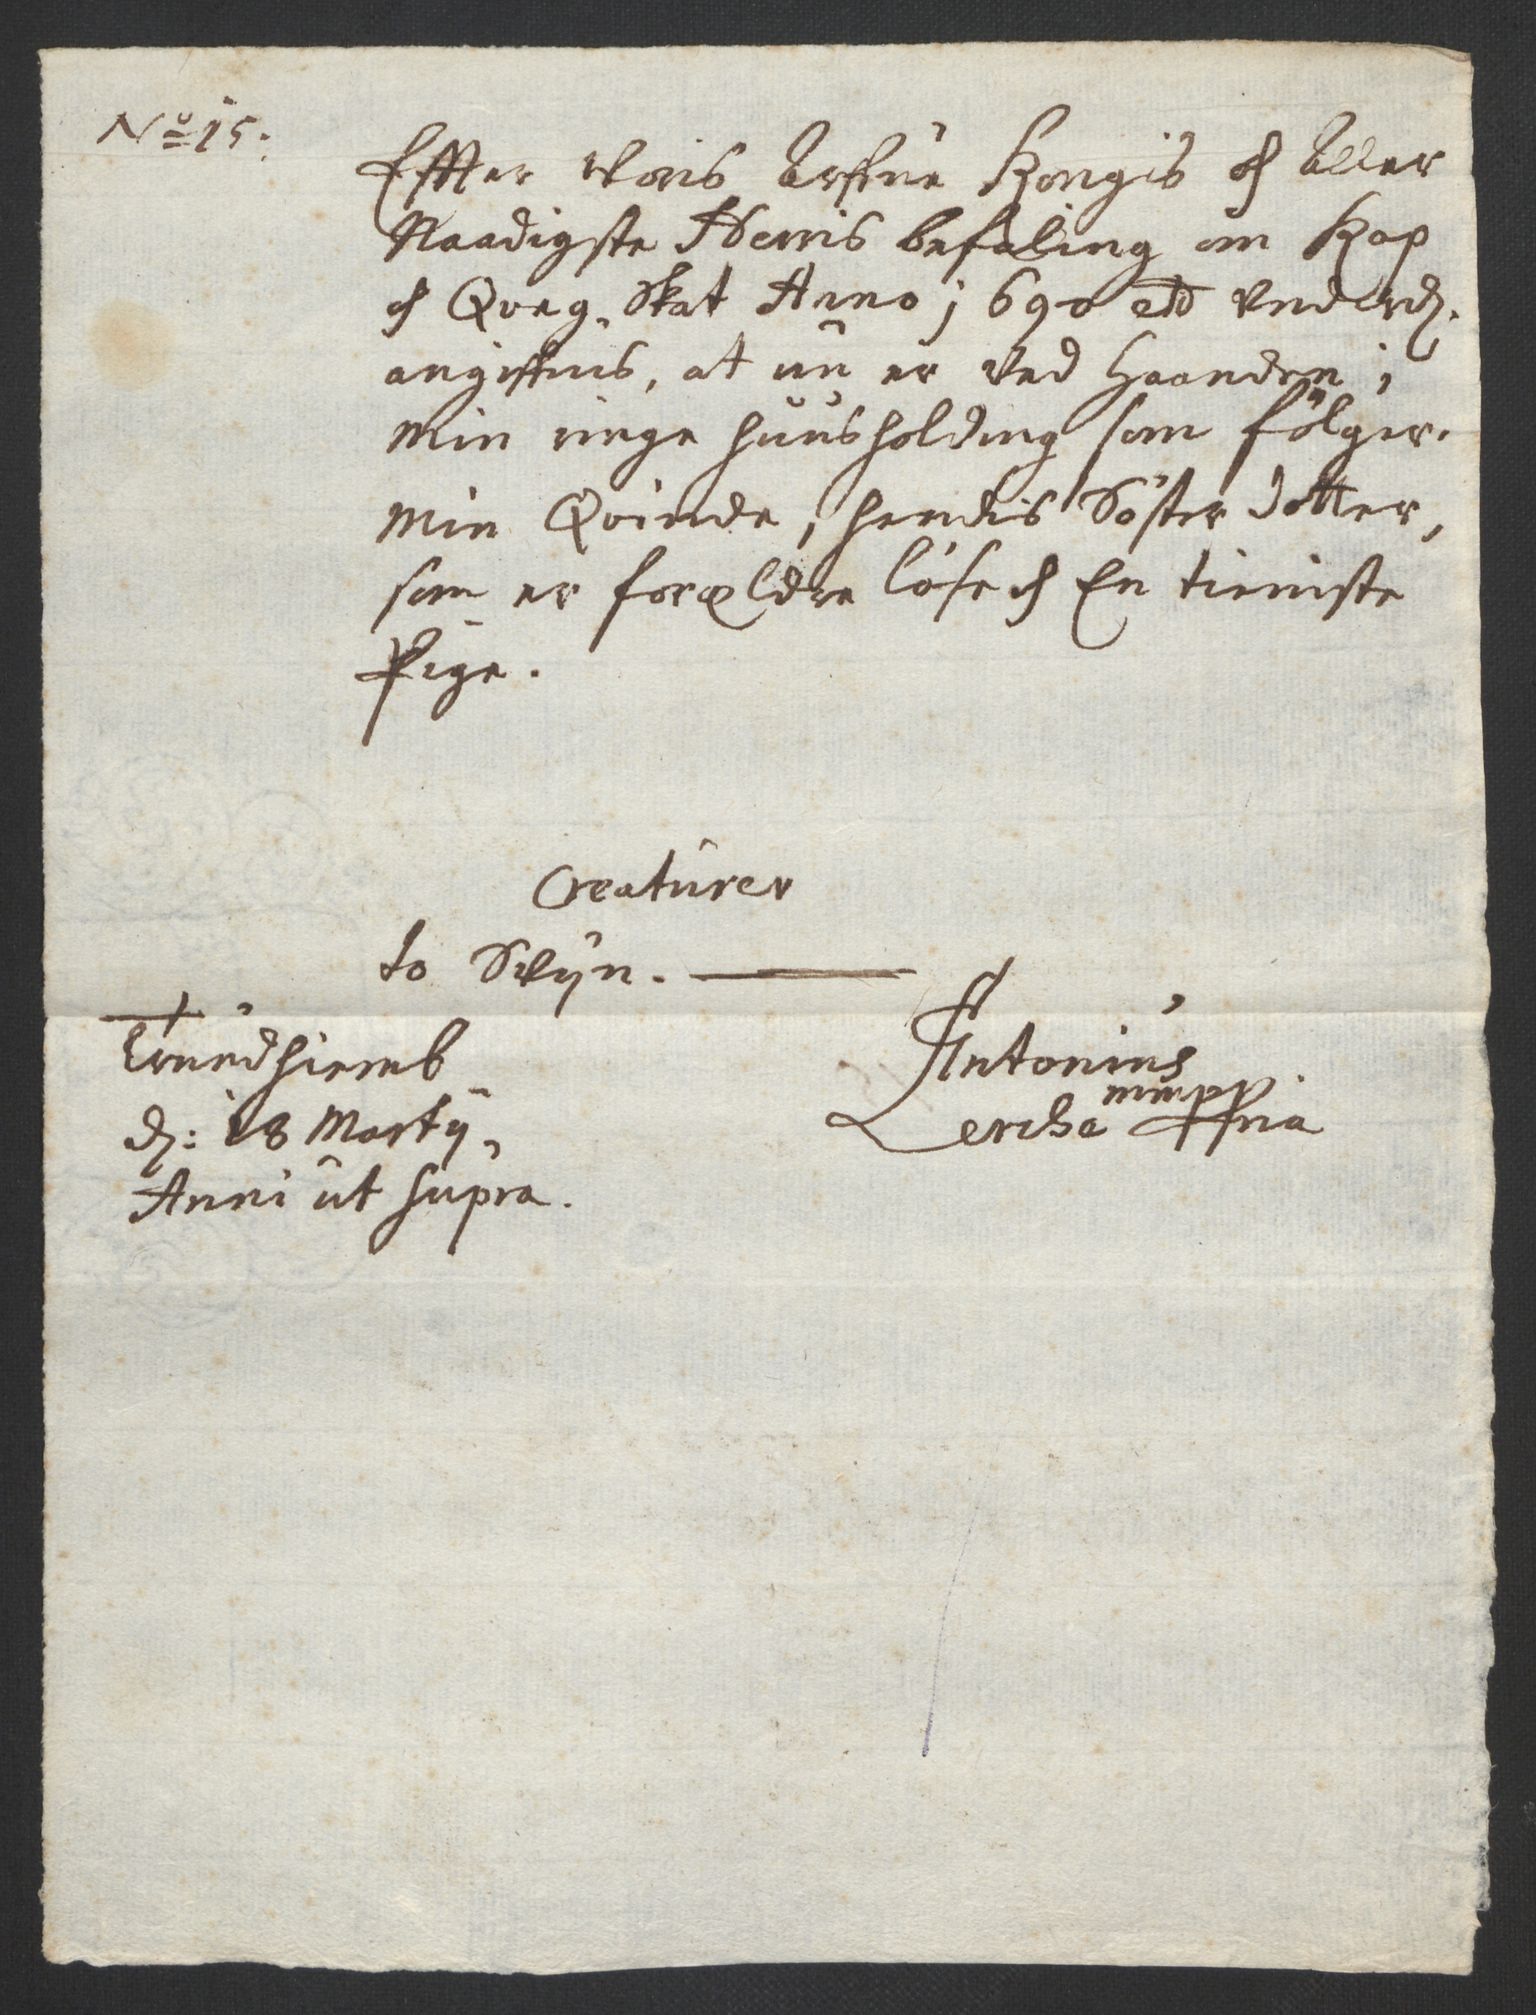 No 15.
Effter Woris Arffue Kongis oc Aller
Naadigste Herris befaling om Kop
oc Qveg Skat Anno 1690 Vnderd.
angiffuis, at nu er Ved Haanden i
min ringe huusholding som fölger.
Min Qvinde, hendis Söster dotter,
som er forældre löse oc En tieniste
Pige.
Creaturer
to Swijn.
Trundhiemb
d: 18 Martij
Anni ut supra.
Antonius
Lerche mmpp